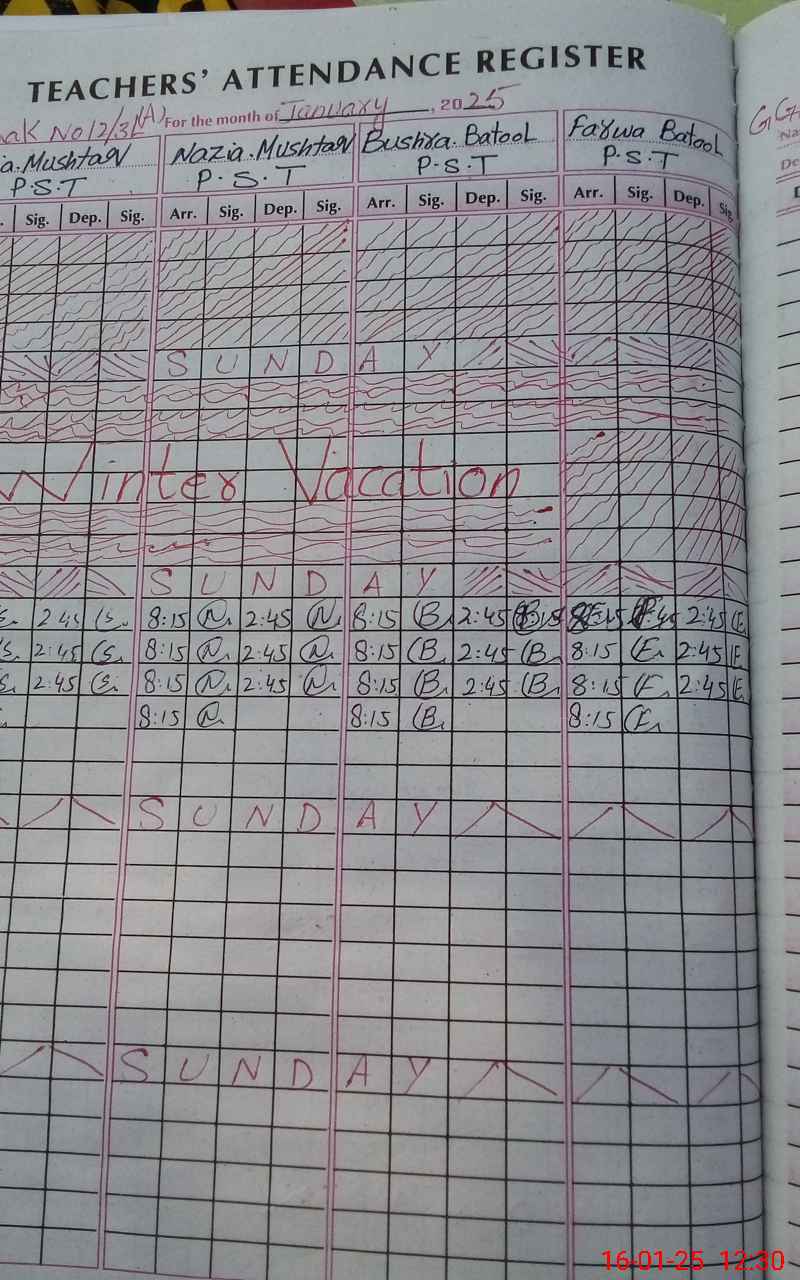 TEACHERS' ATTENDANCE REGISTER
No 12/3L(A) For the month of January, 2025
a. Mushtaq Nazia. Mushtaq Bushra. Batool Farwa Batool
P.S.T P.S.T P.S.T P.S.T
Sig. Dep. Sig. Arr. Sig. Dep. Sig. Arr. Sig. Dep. Sig. Arr. Sig. Dep. Sig.
SUNDAY
Winter Vacation
SUNDAY
2:45 8:15 N. 2:45 N. 8:15 B. 2:45 2:45
2:45 8:15 N. 2:45 N. 8:15 B. 2:45 B. 8:15 2:45
2:45 8:15 N. 2:45 N. 8:15 B. 2:45 B. 8:15 2:45
8:15 N. 8:15 B. 8:15
SUNDAY
SUNDAY
16-01-25 12:30